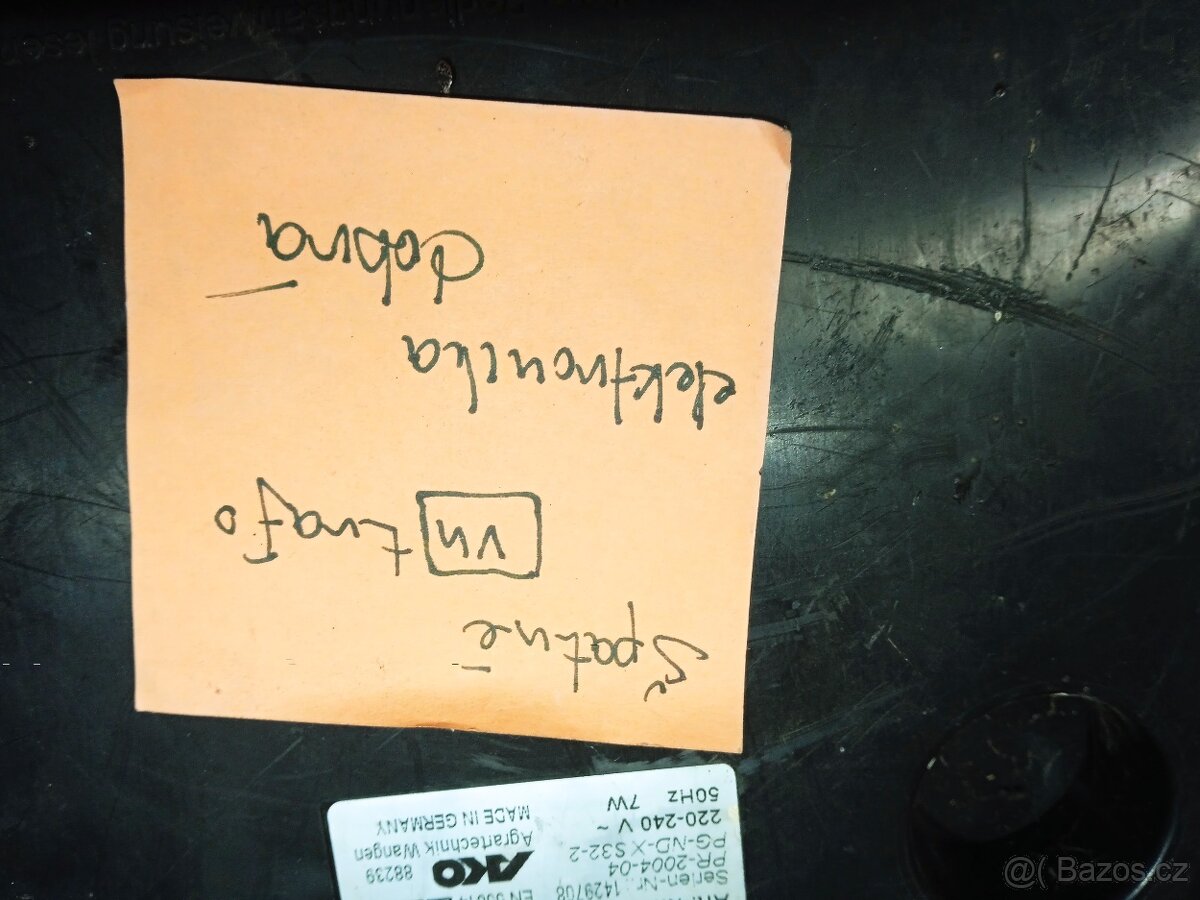 Špatné
vn trafo
elektronika
dobrá
Serien-Nr.: 1429708
PR-2004-04
PG-ND-X S32-2
220-240 V ~
50Hz 7W
AKO
88239
Agrartechnik Wangen
MADE IN GERMANY
@( Bazos.cz